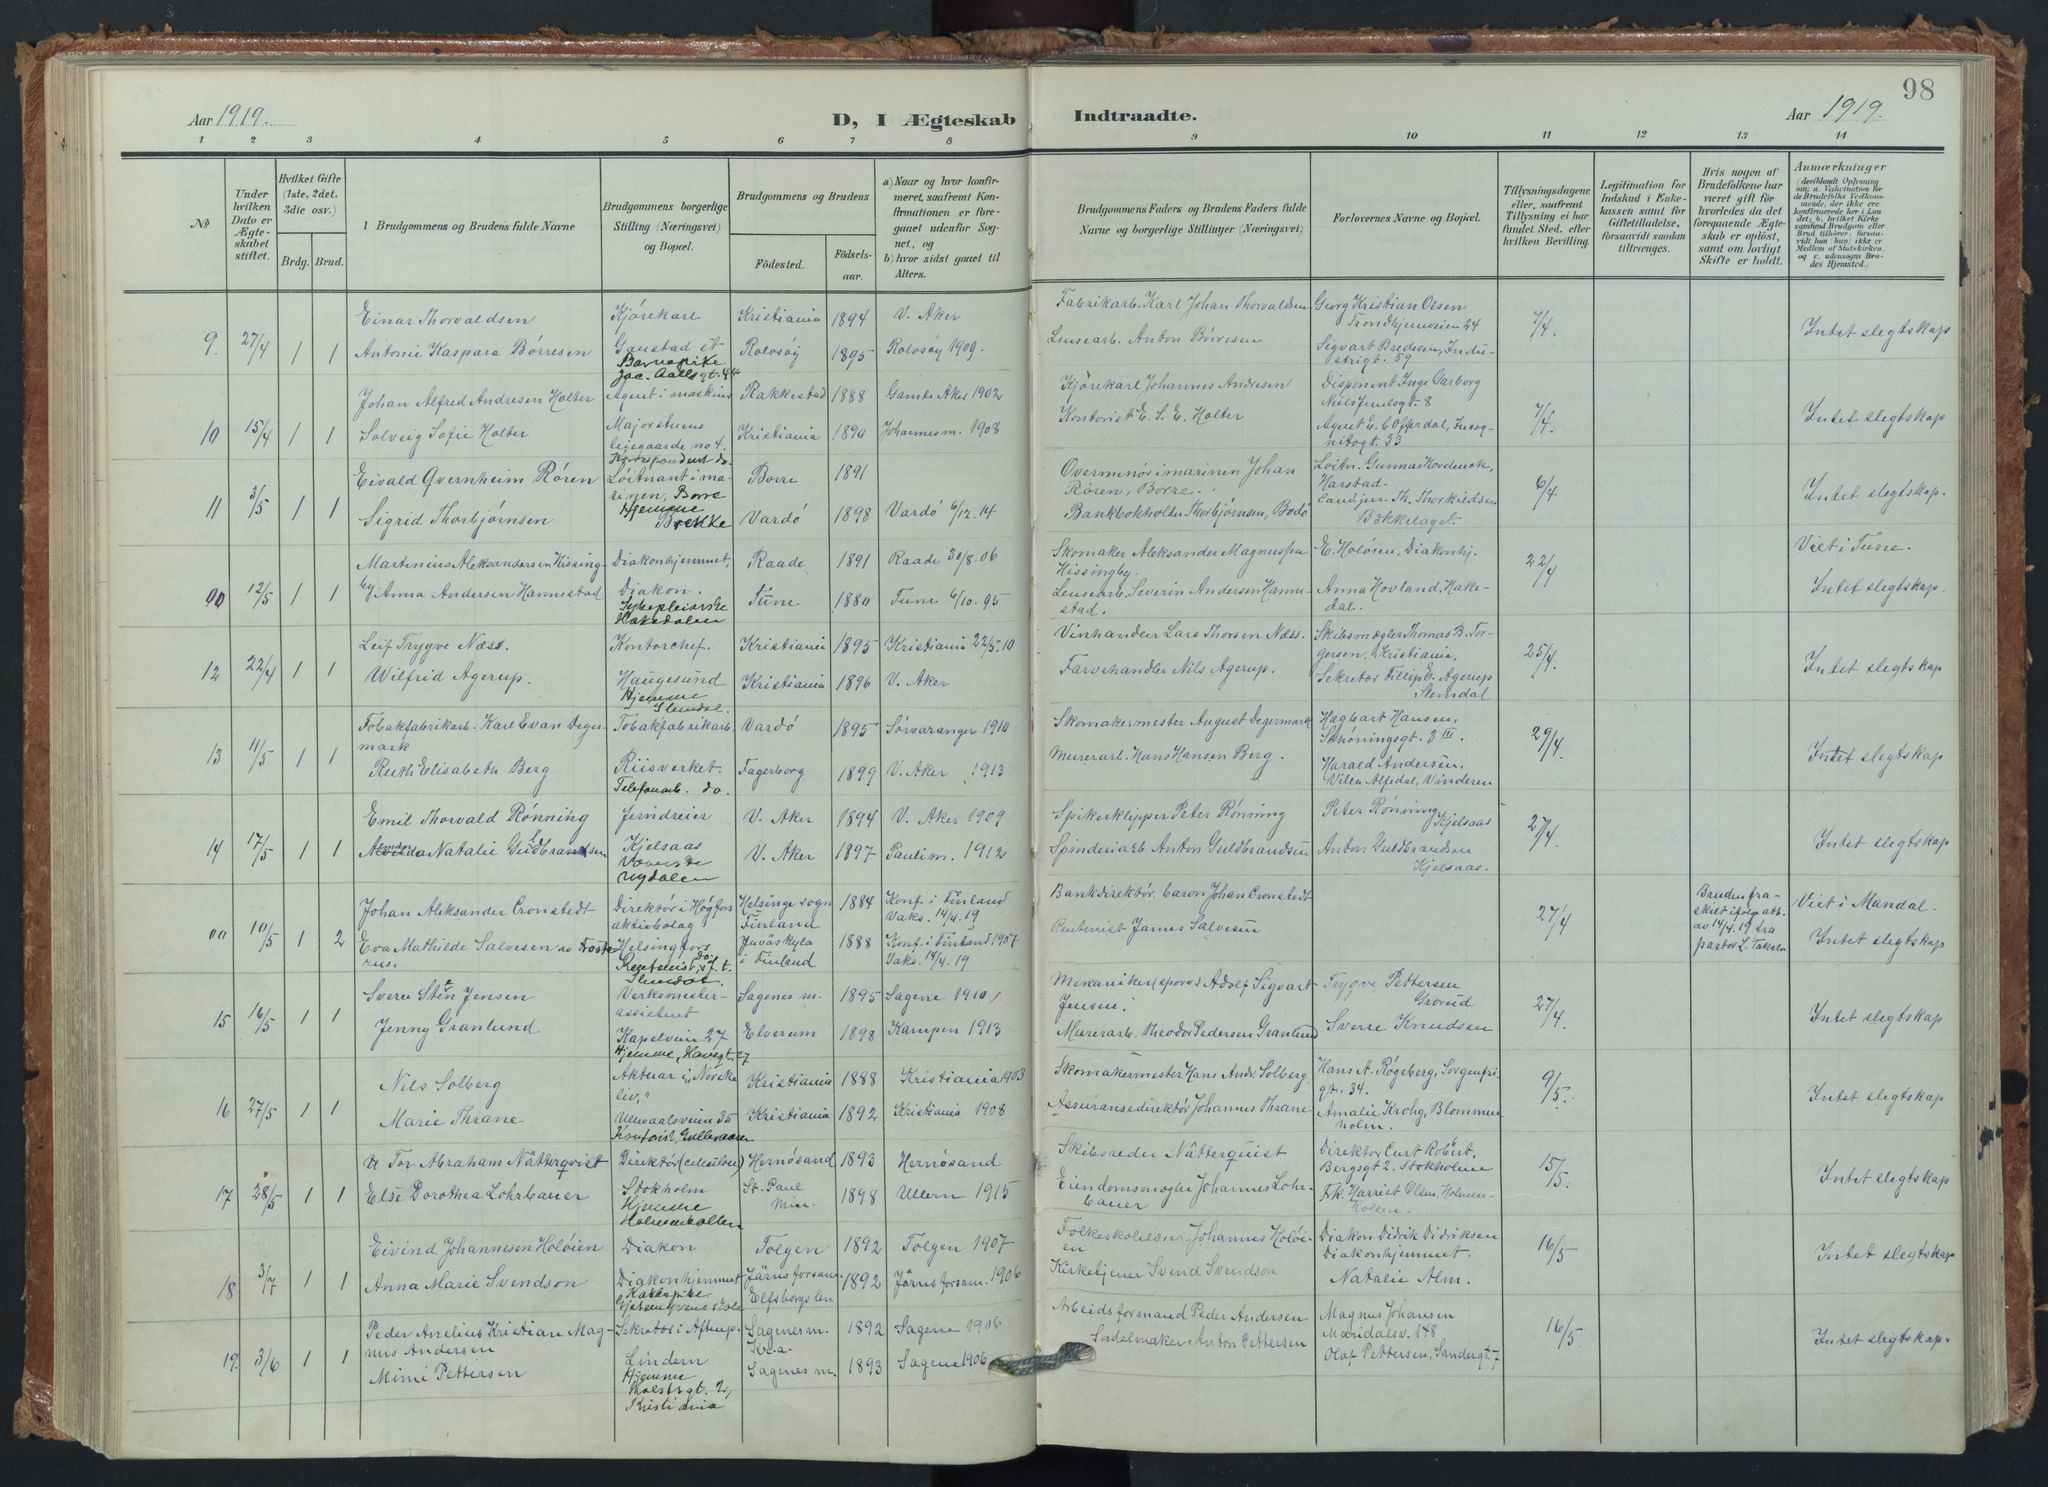 98
Aar 1919.
D, I Ægteskab
Indtraadte.
Aar 1919.
1 2 3 4 5 6 7 8 9 10 11 12 13 14
No
Under hvilken Dato er Ægteskabet stiftet.
Hvilket Gifte (1ste, 2det, 3die osv.)
Brdg. Brud.
Brudgommens og Brudens fulde Navne
Brudgommens borgerlige Stilling (Næringsvei) og Bopæl.
Brudgommens og Brudens
Fødested.
Fødselsaar.
a) Naar og hvor konfirmeret, saafremt Konfirmationen er foregaaet udenfor Sognet, og
b) hvor sidst gaaet til Alters.
Brudgommens Faders og Brudens Faders fulde Navne og borgerlige Stillinger (Næringsvei)
Forlovernes Navne og Bopæl.
Tillysningsdagene eller, saafremt Tillysning ei har fundet Sted, efter hvilken Bevilling.
Legitimation for Indskud i Enkekassen samt for Giftetilladelse, forsaavidt saadan tiltrænges.
Hvis nogen af Brudefolkene har været gift før hvorledes da det foregaaende Ægteskab er opløst, samt om lovligt Skifte er holdt.
Anmærkninger
9. 27/4 1 1
Einar Thorvaldsen Kjørekarl Kristiania 1894 V. Aker
Fabrikarb. Karl Johan Thorvaldsen
Georg Kristian Olsen
Trondhjemsveien 24
7/4.
Intet slegtskap
Antonie Kaspara Børresen Gaustad st. Rolvsøy 1895 Rolvsøy 1909.
Barnepike
Jac. Aalls gt. 44
Lensearb. Anton Børresen
Sigvart Bredesen, Industrigt. 59
10 15/4 1 1
Johan Alfred Andresen Holter Agent i maskiner Rakkestad 1888 Gamle Aker 1902
Kjørekarl Johannes Andresen
Disponent Inge Garborg
Niels Juelsgt. 8
7/4.
Intet slegtskap
Solveig Sofie Holter Majorstuens
leiegaarde no 4. Kristiania 1890 Johannesm. 1908
Korrespondent do.
Kontorist E. S. E. Holter
Agent E. Offerdal, Incognitogt. 33
11 3/5 1 1
Eivald Qvernheim Røren Løitnant i marinen, Borre Borre 1891
Overminør i marinen Johan
Røren, Borre.
Løitn. Gunnar Hovdenak,
Harstad.
6/4
Intet slegtskap.
Sigrid Thorbjørnsen Hjemme
Brekke Vardø 1898 Vardø 6/12.14
Bankbokholder Thorbjørnsen, Bodø
Cand jur. Th. Thorkildsen
Bækkelaget.
00 12/5 1 1
Martinius Aleksandersen Hissingby Diakonhjemmet, Raade 1891 Raade 30/8.06
Skomaker Aleksander Magnussen
Hissingby.
E. Holøien, Diakonhj.
22/4
Viet i Tune.
Intet slegtskap.
Anna Andersen Hannestad Diakon.
Sykepleierske
Hakedalen Tune 1880 Tune 6/10.95
Lensearb. Severin Andersen Hannestad.
Anna Hovland, Hakedal.
12 22/4 1 1
Leif Trygve Næss. Kontorchef. Kristiania 1895 Kristiania 22/5.10
Vinhandler Lars Thorsen Næss.
Skibsmægler Thomas B. Torgersen, Kristiania.
25/4.
Intet slegtskap
Wilfrid Agerup. Haugesund
Hjemme
Slemdal. Kristiania 1896 V. Aker
Farvehandler Nils Agerup.
Sekretær Fillip E. Agerup
Slemdal
13 11/5 1 1
Tobakfabrikarb. Karl Evan Degermark Tobakfabrikarb. Vardø 1895 Sørvaranger 1910
Skomakermester August Degermark
Hagbart Hansen,
Schøningsgt. 3 III.
29/4
Intet slegtskap
Ruth Elisabeth Berg Riisverket.
Telefonarb. do. Fagerborg 1899 V. Aker 1913
Murerarb. Hans Hansen Berg.
Harald Andersen,
Villa Alfdal, Vinderen
14 17/5 1 1
Emil Thorvald Rønning Jerndreier V. Aker 1894 V. Aker 1909
Spikerklipper Peter Rønning
Peter Rønning
Kjelsaas
27/4
Intet slegtskap
Natalie Guldbrandsen Kjelsaas
Væverske
Nydalen V. Aker 1897 Paulim. 1912
Spinderiarb Anton Guldbrandsen
Anton Guldbrandsen
Kjelsaas.
00 10/5 1 2
Johan Aleksander Cronstedt Direktør i Högfors
aktiebolag Helsinge sogn
Finland 1884 Konf. i Finland
Vaks. 14/4.19
Bankdirektør, baron Johan Cronstedt
27/4
Bruden fraskilt ifølge att.
av 14/4.19 fra
pastor L. Takala
Viet i Mandal.
Intet slegtskap
Eva Mathilde Salvesen av Trosterus. Helsingfors
Slemdal. Jyväskyla
i Finland 1888 Konf. i Finland 1907
Vaks. 14/4.19
Rentenist James Salvesen
15 16/5 1 1
Sverre Sten Jensen Verksmesterassistent Sagenes m. 1895 Sagene 1910
Mekaniker (sporv) Adolf Sigvart
Jensen.
Trygve Pettersen
Grorud
27/4
Intet slegtskap
Jenny Granlund Kapelveien 27
Hjemme, Havegt. 27 Elverum 1898 Kampen 1913
Murerarb. Theodor Pedersen Granlund
Sverre Knudsen
16 27/5 1 1
Nils Solberg Aktuar i "Norske
liv," Kristiania 1888 Kristiania 1903
Skomakermester Hans Andr. Solberg.
Hans A. Røgeberg, Sorgenfrigt. 34.
9/5.
Intet slegtskap
Marie Thrane Ullevaalsveien 35
Kontorist, Gullevaaen Kristiania 1892 Kristiania 1908
Assuransedirektør Johannes Thrane
Amalie Krohg, Blommenholm.
17 28/5 1 1
Tor Abraham Nätterqvist Direktør (cellulosen) Hernøsand 1893 Hernøsand
Skibsreder Nätterquist
Direktør Curt Robert.
Bergsgt 2. Stokholm
15/5.
Intet slegtskap
Else Dorothea Lohrbauer Stokholm
Hjemme
Holmenkollen St. Paul
Min. 1898 Ullern 1915
Eiendomsmægler Johannes Lohrbauer
Frk. Harriet Olsen, Holmenkollen.
18 3/7 1 1
Eivind Johannesen Holøien Diakon Tolgen 1892 Tolgen 1907
Johannes Holøien
Diakon Didrik Didriksen
Diakonhjemmet.
16/5
Intet slegtskap
Anna Marie Svendson Diakonhjemmet
Kokkepike Järns forsam.
Elfsborgs len 1892 Järns forsam. 1906
Kirketjener Svend Svendson
Natalie Alm.
19. 3/6 1 1
Peder Anelius Kristian Magnus Andersen Sekretær i Aftenp. Sagenes m.
Kr.a. 1892 Sagene 1906
Arbeidsformand Peder Andersen
Magnus Johansen
Maridalsv. 148
16/5
Intet slegtskap.
Mimi Pettersen Lindern
Hjemme
Kristiania Sagenes m. 1893 Sagene 1906
Sadelmaker Anton Pettersen
Olaf Pettersen, Sandergt. 7